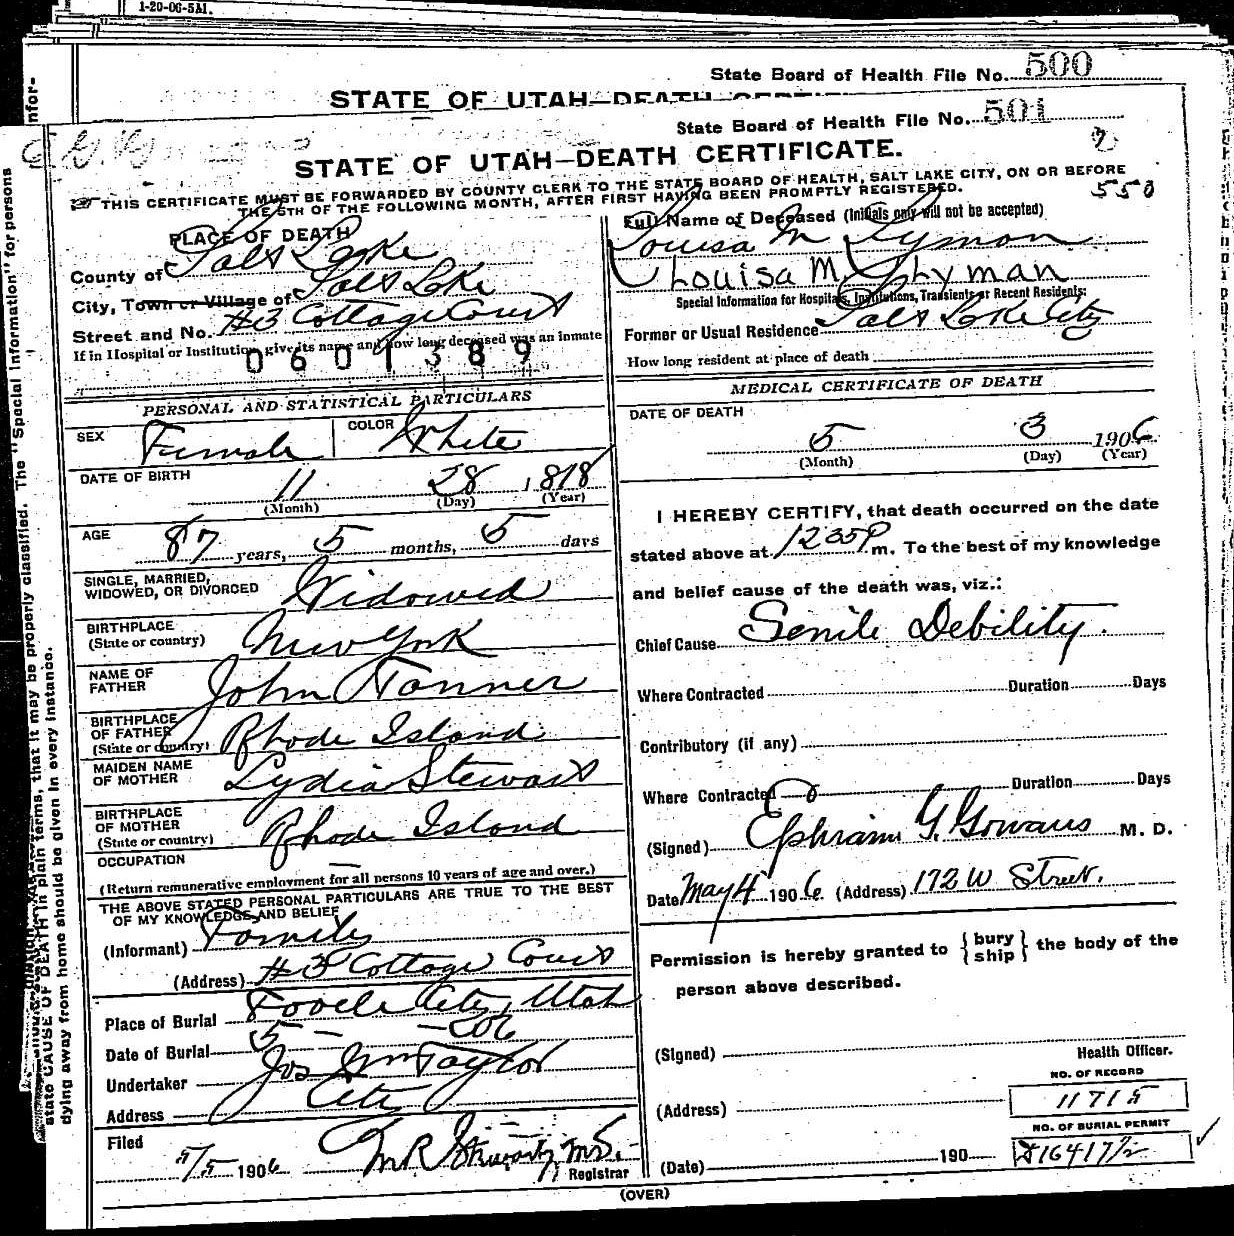 1-20-06-5M.
State Board of Health File No. 500
STATE OF UTAH—DEATH
State Board of Health File No. 501
STATE OF UTAH—DEATH CERTIFICATE.
THIS CERTIFICATE MUST BE FORWARDED BY COUNTY CLERK TO THE STATE BOARD OF HEALTH, SALT LAKE CITY, ON OR BEFORE
THE 5TH OF THE FOLLOWING MONTH, AFTER FIRST HAVING BEEN PROMPTLY REGISTERED.
550
PLACE OF DEATH
County of Salt Lake
City, Town or Village of Salt Lake
Street and No. #3 Cottage Court
If in Hospital or Institution, give its name and how long deceased was an inmate
0601389
PERSONAL AND STATISTICAL PARTICULARS
SEX Female COLOR White
DATE OF BIRTH 11 28 1818
(Month) (Day) (Year)
AGE 87 years, 5 months, 5 days
SINGLE, MARRIED,
WIDOWED, OR DIVORCED Widowed
BIRTHPLACE
(State or country) New York
NAME OF
FATHER John Tanner
BIRTHPLACE
OF FATHER
(State or country) Rhode Island
MAIDEN NAME
OF MOTHER Lydia Stewart
BIRTHPLACE
OF MOTHER
(State or country) Rhode Island
OCCUPATION
(Return remunerative employment for all persons 10 years of age and over.)
THE ABOVE STATED PERSONAL PARTICULARS ARE TRUE TO THE BEST
OF MY KNOWLEDGE AND BELIEF
(Informant) Family
(Address) #3 Cottage Court
Place of Burial Tooele City, Utah
Date of Burial 5 — — 206
Undertaker Jos Wm Taylor
Address City
Filed
5/5 1906 Registrar
Full Name of Deceased (Initials only will not be accepted)
Louisa M Lyman
Louisa M. Lyman
Special Information for Hospitals, Institutions, Transients or Recent Residents:
Former or Usual Residence Salt Lake City
How long resident at place of death
MEDICAL CERTIFICATE OF DEATH
DATE OF DEATH
5 3 1906
(Month) (Day) (Year)
I HEREBY CERTIFY, that death occurred on the date
stated above at 1235P m. To the best of my knowledge
and belief cause of the death was, viz.:
Chief Cause Senile Debility.
Where Contracted Duration Days
Contributory (if any)
Where Contracted Duration Days
(Signed) Ephraim G. Gowans M. D.
Date May 4 1906 (Address) 172 W Street.
Permission is hereby granted to {bury ship} the body of the
person above described.
(Signed)
Health Officer.
NO. OF RECORD
(Address) 11715
NO. OF BURIAL PERMIT
(Date) 190
(OVER)
state CAUSE OF DEATH in plain terms, that it may be properly classified. The "Special Information" for persons
dying away from home should be given in every instance.